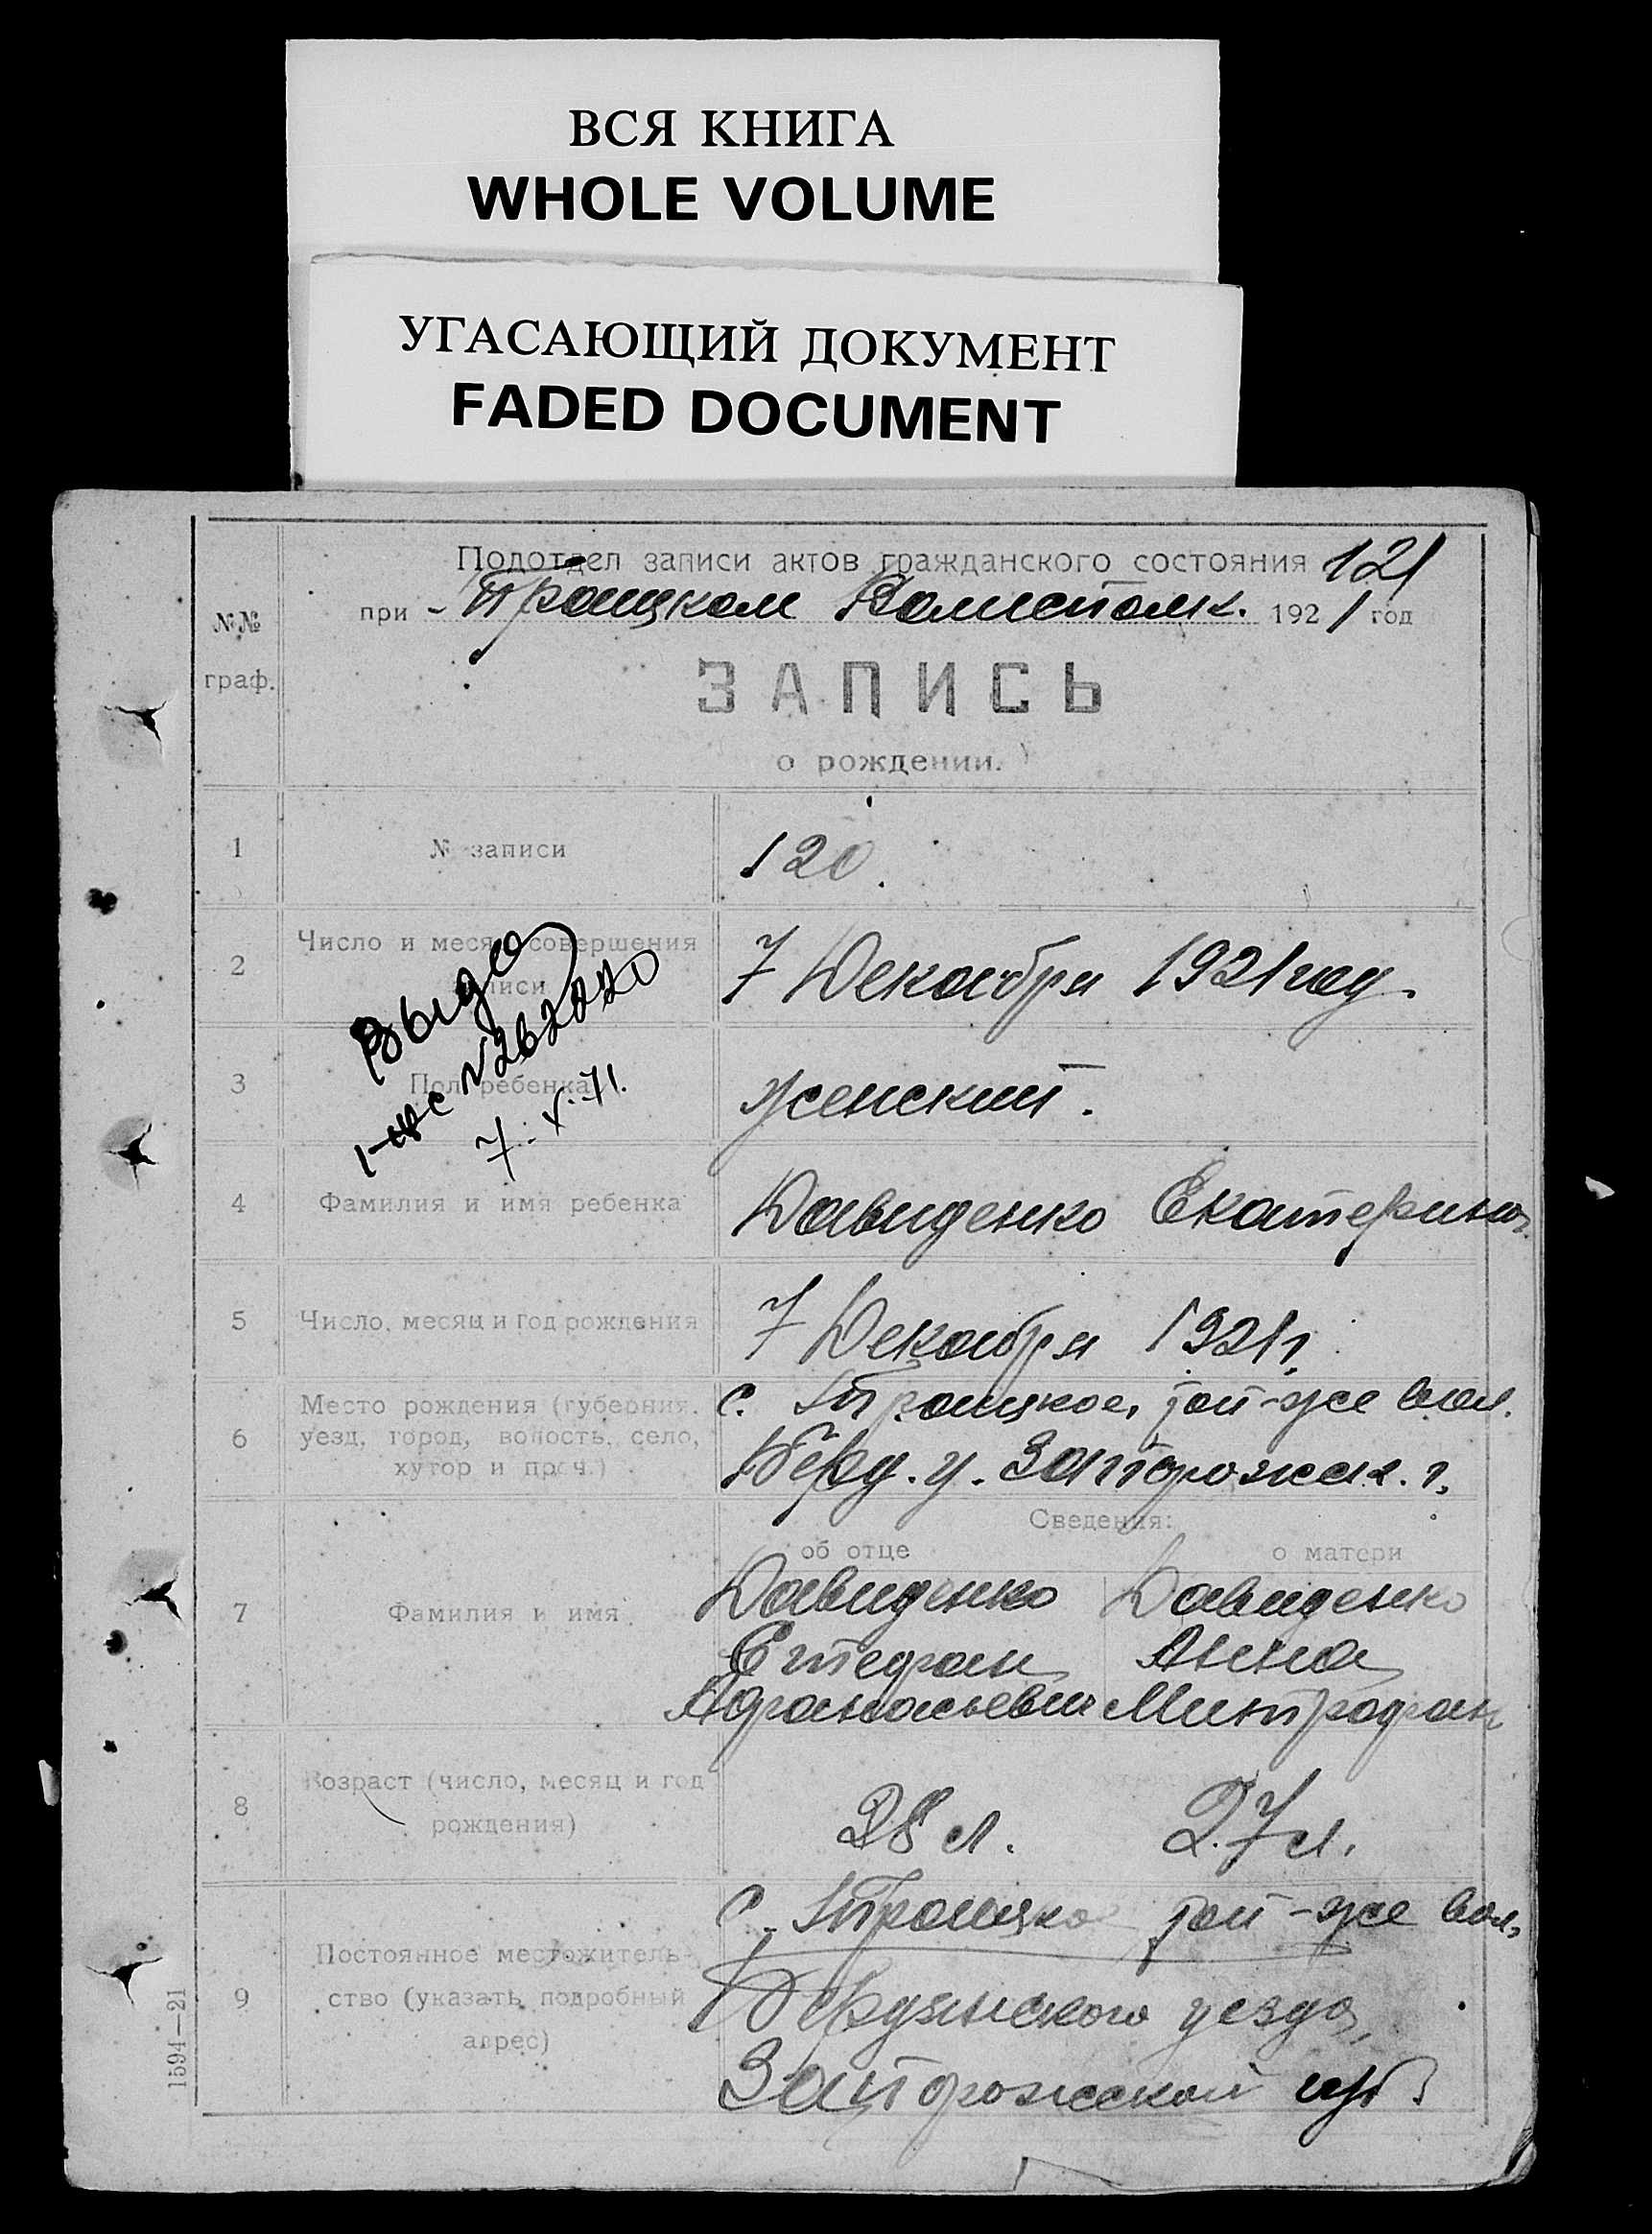 ВСЯ КНИГА
WHOLE VOLUME
УГАСАЮЩИЙ ДОКУМЕНТ
FADED DOCUMENT
Подотдел записи актов гражданского состояния 121
при Троицком 1921 год
№№ граф.
ЗАПИСЬ
о рождении.
1 № записи 120.
2 Число и месяц совершения записи 7 Декабря 1921 год.
Выдо
7.V.71.
3 Пол ребенка женский.
4 Фамилия и имя ребенка Давиденко Екатерина
5 Число, месяц и год рождения 7 Декабря 1921 г.
6 Место рождения (губерния, уезд, город, волость, село, хутор и проч.)
с. Троицкое, той-же вол.
Берд. у. Запорожск. г.
Сведения:
об отце о матери
7 Фамилия и имя
Давиденко Давиденко
Степан Анна
Афанасьевич Митрофан
8 Возраст (число, месяц и год рождения) 28 л. 27 л.
9 Постоянное местожительство (указать подробный адрес)
с. Троицко той-же вол,
Бердянского уезда,
Запорожской губ.
1594—21